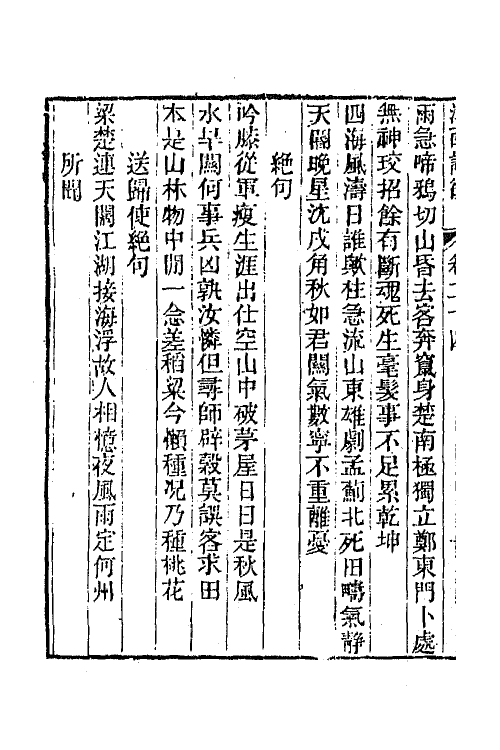 雨急啼鴉切山昏去客奔竄身楚南極獨立鄭東門卜處
無神珓招餘有斷魂死生毫髮事不足累乾坤
四海風濤日誰歟柱急流山東雄劇孟薊北死田疇氣靜
天關晚星沈戍角秋如君關氣數寧不重離憂
絶句
吟膝從軍瘦生涯出仕空山中破茅屋日日是秋風
水旱關何事兵凶孰汝憐但尋師辟穀莫誤客求田
本是山林物中閒一念差稻粱今懶種况乃種桃花
送歸使絶句
梁楚連天闊江湖接海浮故人相憶夜風雨定何州
所聞